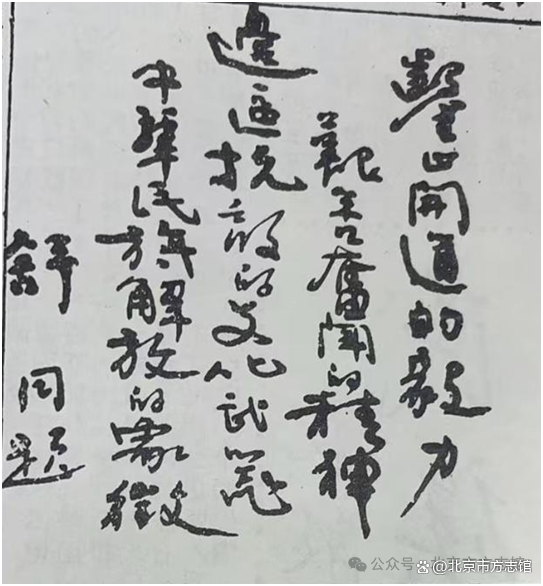 鑿山開道的毅力
艱苦奮鬥的精神
邊區抗敵的文化武器
中華民族解放的象徵
舒同題
公众号·北京市方志馆
@北京市方志馆